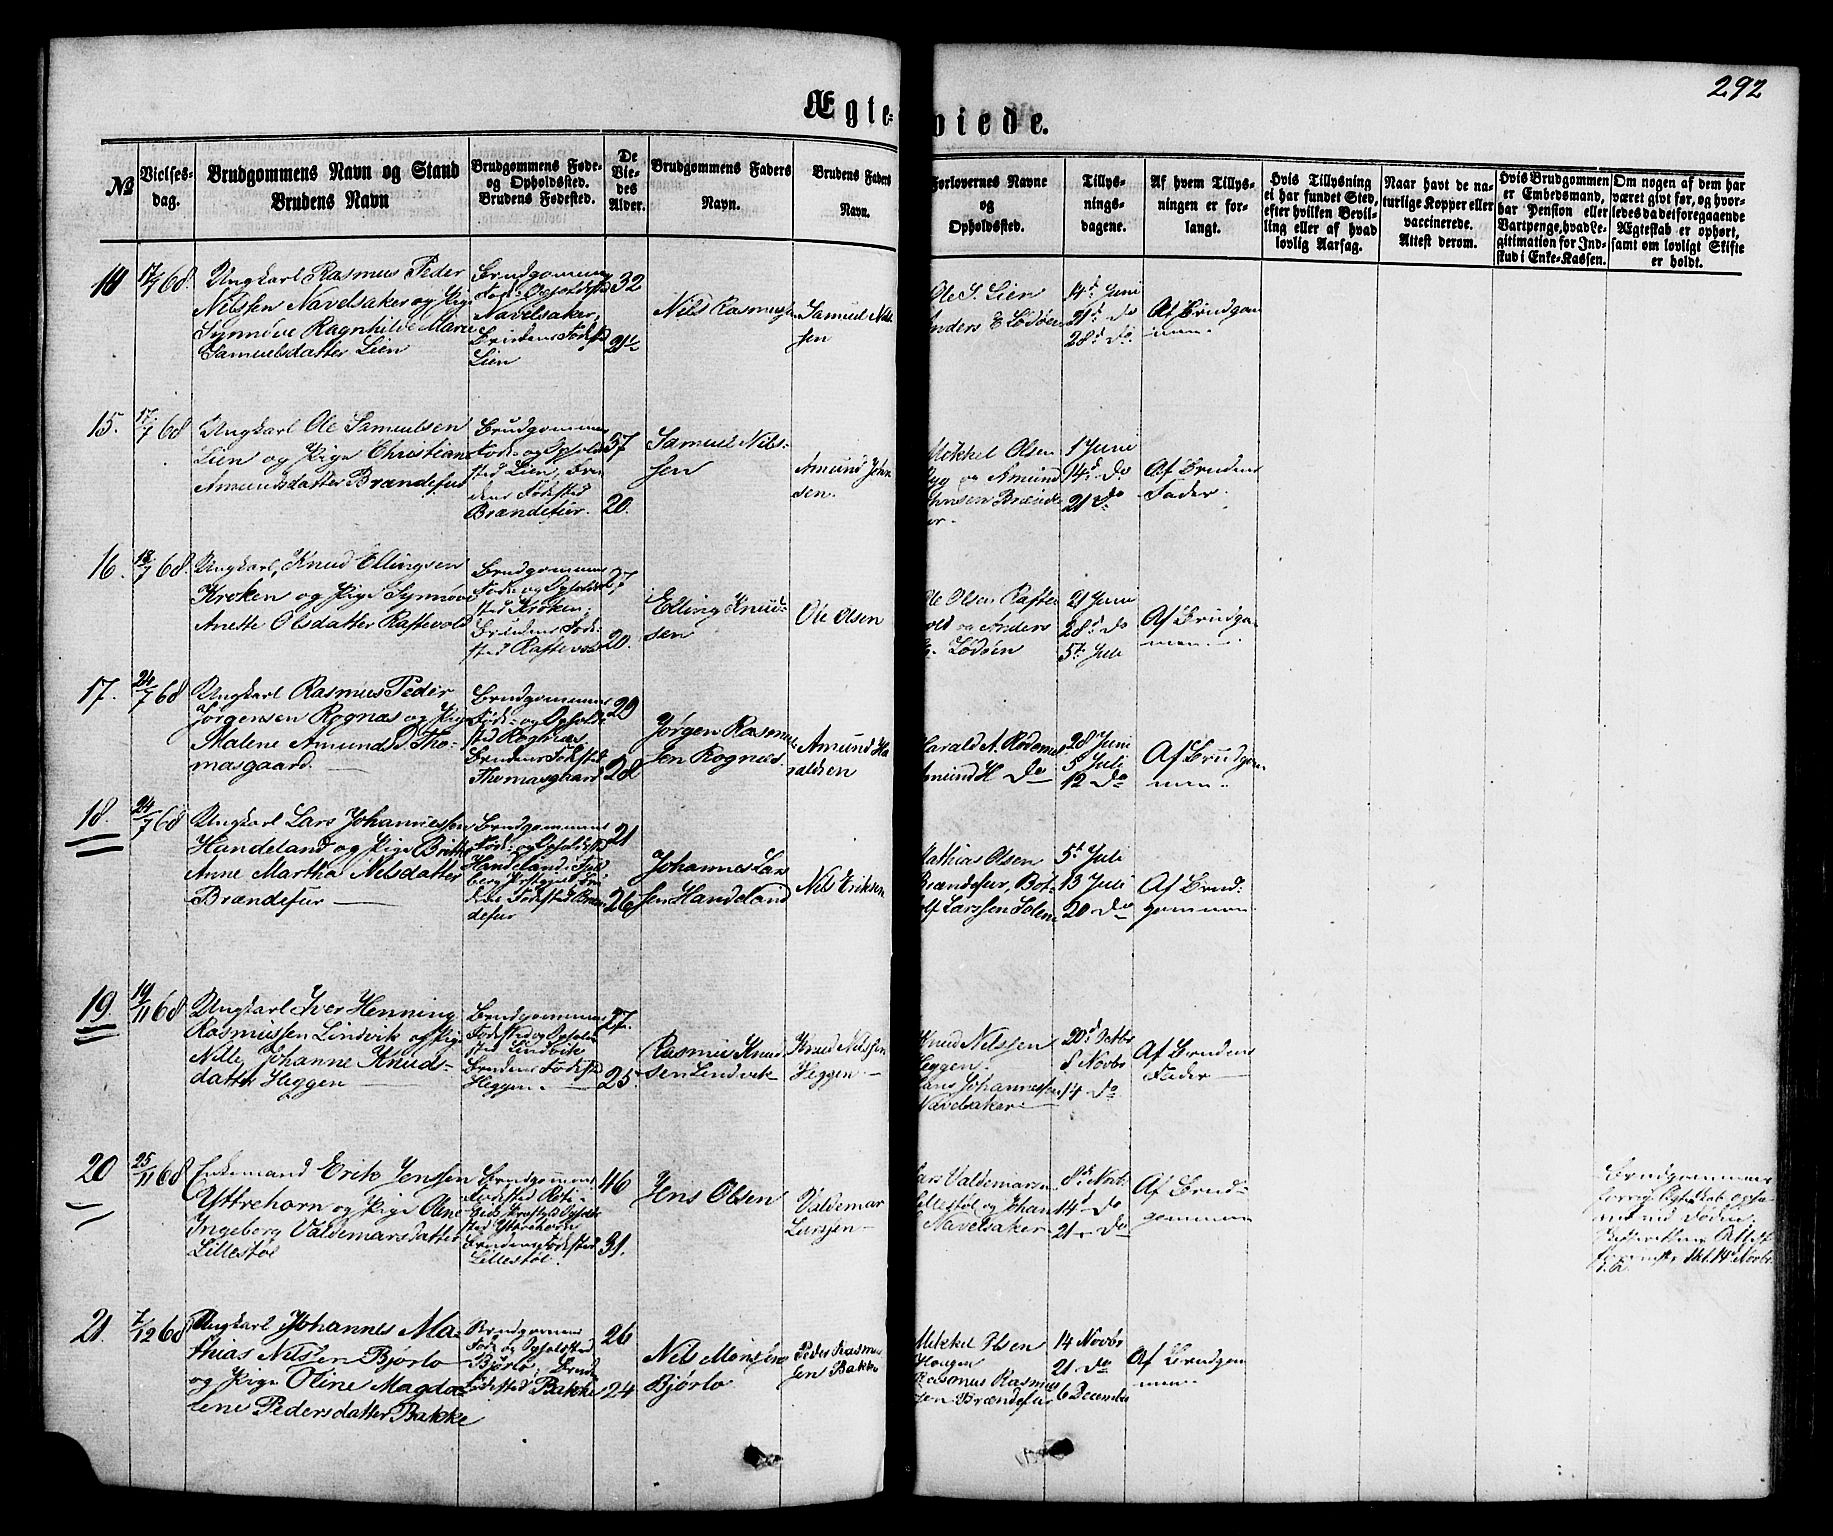 292
Ægte-viede.
No
Vielses-
dag.
Brudgommens Navn og Stand
Brudens Navn
Brudgommens Føde-
og Opholdssted.
Brudens Fødested.
De
Vie-
des
Alder.
Brudgommens Faders
Navn.
Brudens Faders
Navn.
Forlovernes Navne
og
Opholdssted.
Tillys-
nings-
dagene.
Af hvem Tillys-
ningen er for-
langt.
Hvis Tillysning
ei har fundet Sted,
efter hvilken Bevil-
ling eller af hvad
lovlig Aarsag.
Naar havt de na-
turlige Kopper eller
vaccinerede.
Attest derom.
Hvis Brudgommen
er Embedsmand,
har Pension eller
Vartpenge, hvad Le-
gitimation for Ind-
skud i Enke-Kassen.
Om nogen af dem har
været givt før, og hvor-
ledes da det foregaaende
Ægteskab er ophørt,
samt om lovligt Skifte
er holdt.
17/7 68
Ungkarl Rasmus Peder
Nilssen Navelsaker og Pige
Synnøve Ragnhilde Marie
Samuelsdatter Lien
Brudgommens
Navelsaker,
Brudens Fødest
Lien
32
Nils Rasmus
Samuel Nils
sen
Ole S. Lien
Anders E Lødøen
14d Juni
21d do
28d do
Af Brudgom
men
15.
17/7 68
Ungkarl Ole Samuelsen
Lien og Pige Christiane
Amundsdatter Brændefur
Brudgommens
Føde- og Ophold
sted Lien, Bru
dens Fødested
Brændefur.
37
20.
Samuel Nils-
sen
Amund John
sen.
Mokkel Olsen
Myg og Amund
Johnsen Brænde
fur.
1 Juni
14d do
21 do
Af Brudens
Fader.
16.
18/7 68.
Ungkarl, Knud Ellingsen
Kroken og Pige Synnøve
Anette Olsdatter Raftevold
Brudgommens
Føde- og Opholds
sted Kroken,
Brudens Føde-
sted Raftevold
27
20.
Elling Knud-
sen
Ole Olsen
Ole Olsen Rafte
vold og Anders
E. Lødøen
21 Juni
28d do
5t Juli
Af Brudgom
men.
17.
24/7 68
Ungkarl Rasmus Peder
Jørgensen Rognæs og Pige
Malene Amunds D Tho-
masgaard.
Brudgommens
Føde- og Opholds
sted Rognæs
Brudens Fødested
Thomasgaard
29
28
Jørgen Rasmus
sen Rognæs.
Amund Ha
raldsen
Harald A. Rødemes
Amund H do
28 Juni
5t Juli
12 do
Af Brudgom
men.
18.
24/7 68
Ungkarl Lars Johannessen
Handeland og Pige Britha
Anne Martha Nilsdatter
Brændefur
Brudgommens
Føde- og Opholdsst
Handeland i
21
26
Johannes Lars
sen Handeland
Nils Eriksen
Mathias Olsen
Brændefur, Bot-
olf Larssen Solem
5t Juli
13 Juli
20 do
Af Brud-
gommen
19.
19/11 68
Ungkarl Iver Henning
Rasmussen Lindvik og Pige
Nille Johanne Knuds-
datter Heggen
Brudgommens
Fødested og Ophold
sted Lindvik
Brudens Fødested
Heggen.
27
25
Rasmus Knud
sen Lindvik
Knud Nilssen
Heggen
Knud Nilssen
Heggen.
Hans Johannessen
Navelsaker.
20d Octbr
8 Novbr
14 do
Af Brudens
Fader
20
25/11 68
Enkemand Erik Jenssen
Yttrehorn og Pige Oline
Ingeborg Valdemarsdatter
Lillestøl
Brudgommens
Fødested
sted Yttrehorn
Brudens Fødested
Lillestøl.
46
31.
Jens Olsen
Valdemar
Larssen
Lars Valdemarsen
Lillestøl og Johan
Navelsaker
8de Nvbr.
14d do
21 do
Af Brud-
gommen
Brudgommens
forrige Ægteskab opho
ved Døden,
Attest
14 Novbr
21.
7/12 68
Ungkarl Johannes Ma-
thias Nilsen Bjørlo
og Pige Oline Magda-
lene Pedersdatter Bakke
Brudgommens
Føde og Opholdssted
Bjørlo, Brud
Fødested Bakke
26
24
Nils Monsen
Bjørlo
Peder Rasmus
sen Bakke
Mikkel Olsen
Haugen
Rasmus Rasmus
sen Brændefur
14 Novbr
21 do
6 December
Af Brudgom
men